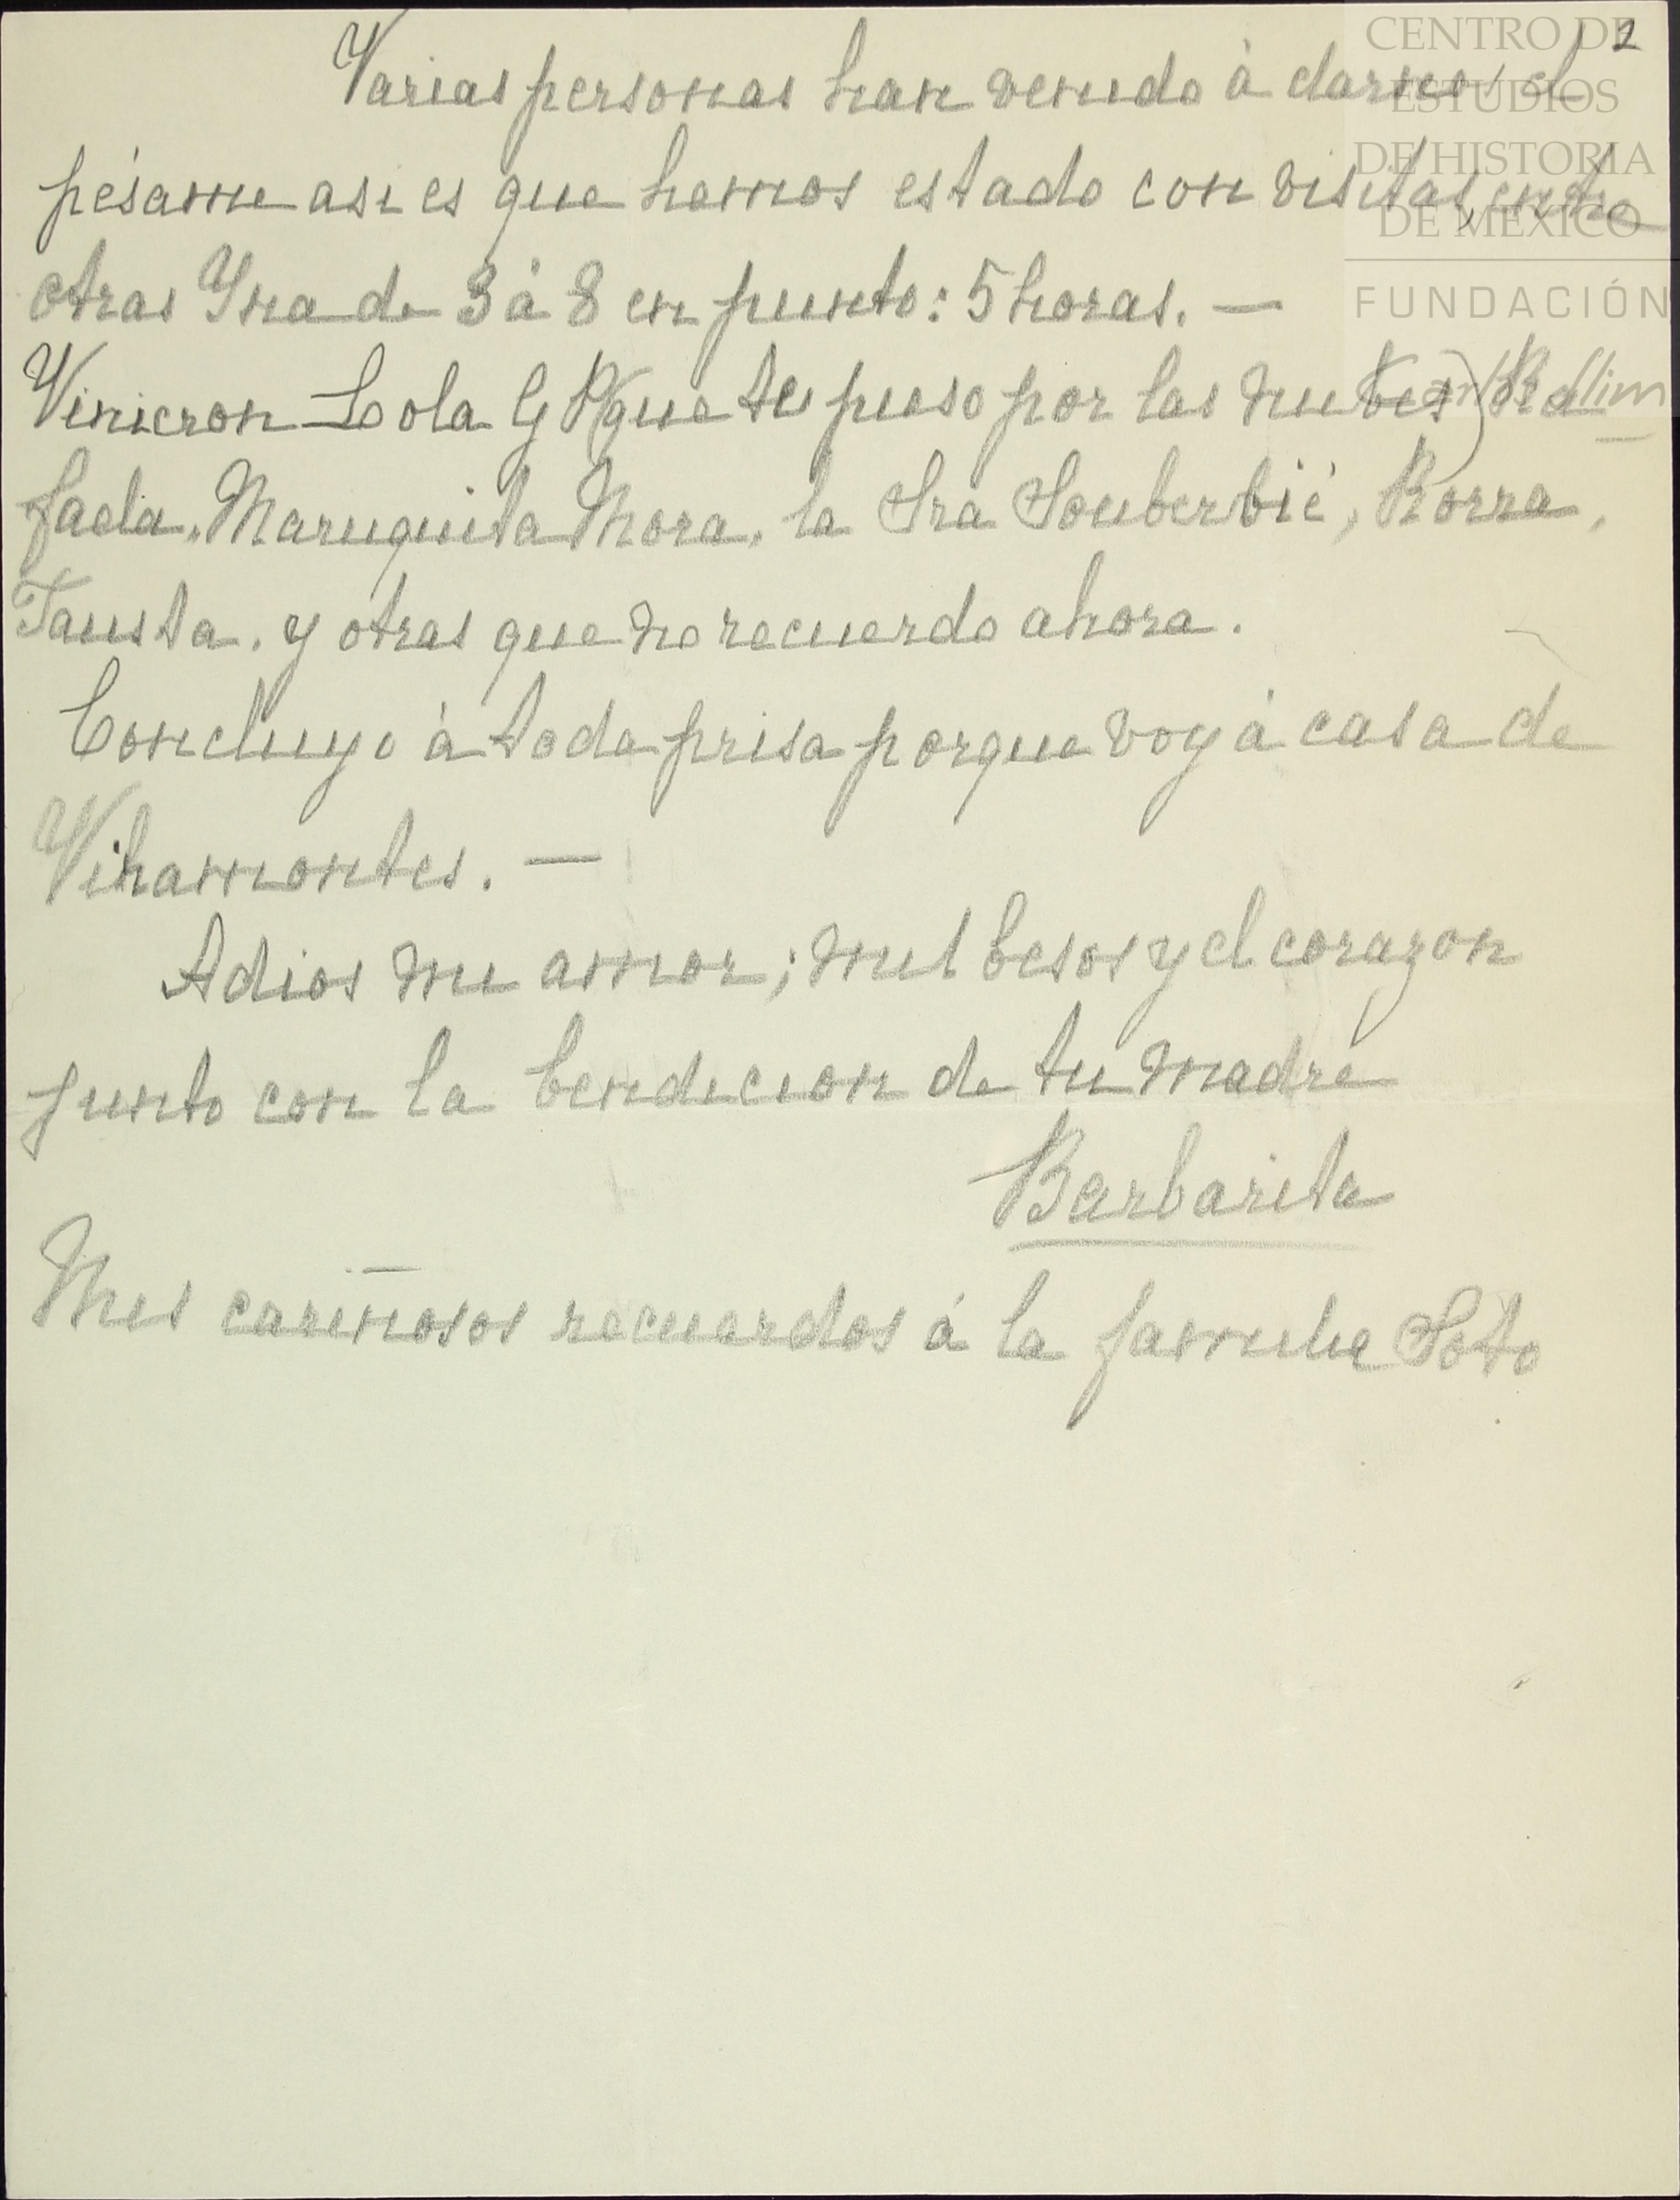 2
Varias personas han venido à darnos el
pésame asi es que hemos estado con visitas, entre
otras Yna de 3 à 8 en punto: 5 horas. —
Vinieron Lola G P (que te puso por las nubes)
Mariquita Mora, la Sra Souberbié, Borra,
Fausta. y otras que no recuerdo ahora.
Concluyo à toda prisa porque voy à casa de
Viramontes. —
Adios mi amor; mil besos y el corazon
junto con la bendicion de tu madre
Barbarita
Mis cariñosos recuerdos à la familia Soto
CENTRO DE
ESTUDIOS
DE HISTORIA
DE MEXICO
FUNDACIÓN